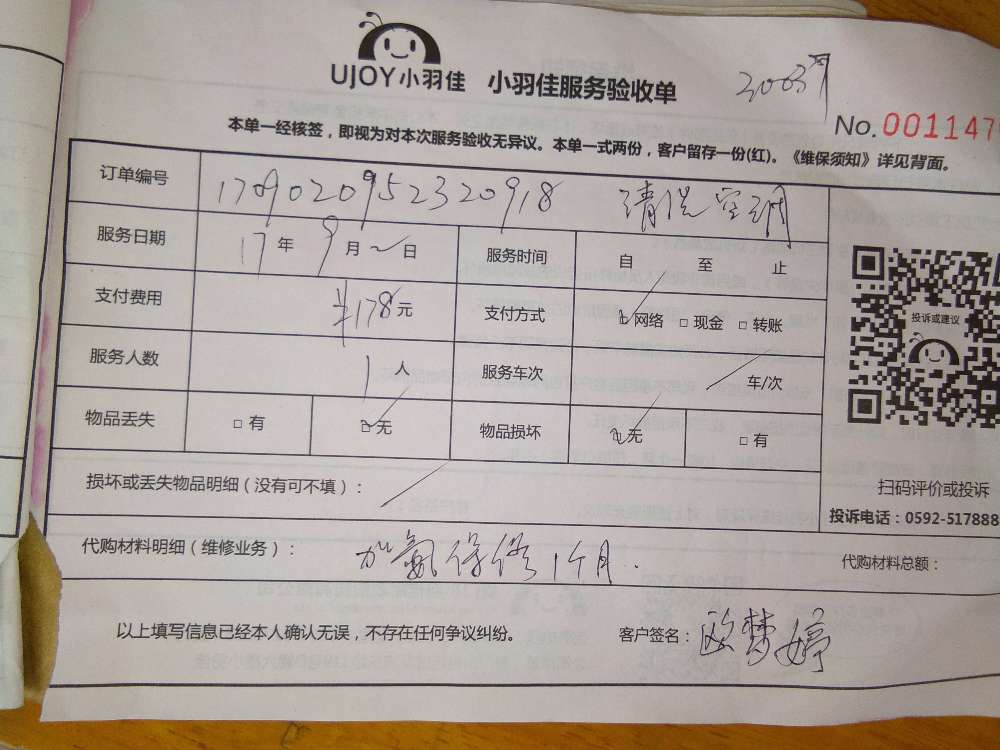 UJOY小羽佳 小羽佳服务验收单
No.0011147
本单一经核签，即视为对本次服务验收无异议。本单一式两份，客户留存一份(红)。《维保须知》详见背面。
订单编号 1709020952320918 清洗空调
服务日期 17年9月2日 服务时间 自 至 止
支付费用 ¥178元 支付方式 ☑网络 □现金 □转账
服务人数 1人 服务车次 / 车/次
物品丢失 □有 ☑无 物品损坏 ☑无 □有
投诉或建议
损坏或丢失物品明细（没有可不填）： /
扫码评价或投诉
投诉电话：0592-517888
代购材料明细（维修业务）： 加氟保修1个月. 代购材料总额：
以上填写信息已经本人确认无误，不存在任何争议纠纷。 客户签名：欧梦婷